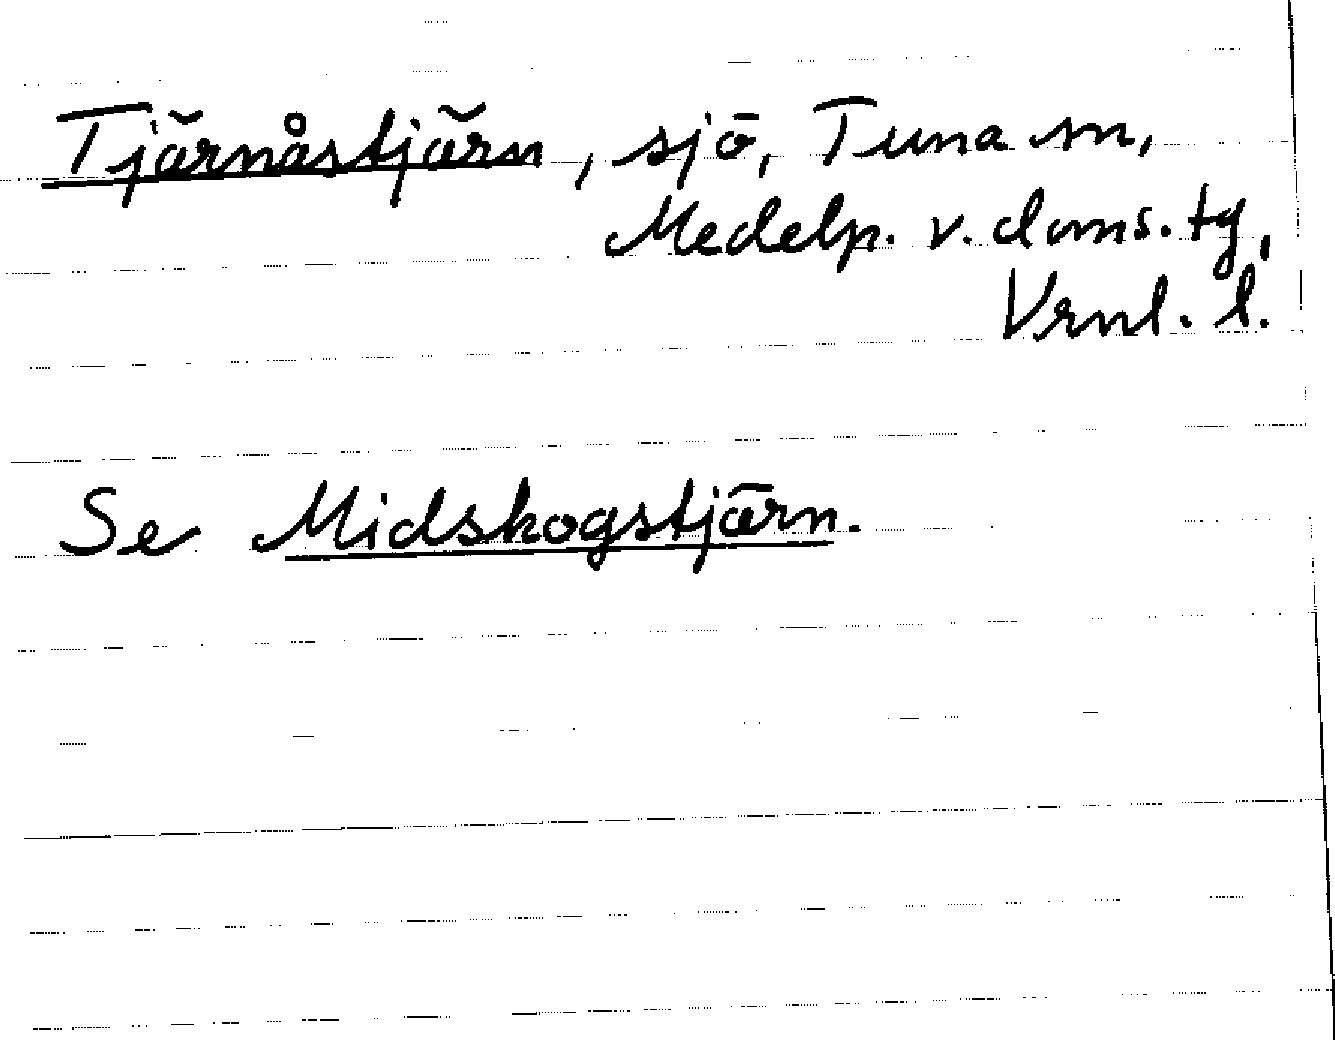 Tjärnåstjärn, sjö, Tuna sn,
Medelp. v. doms. tg,
Vrnl. l.
Se Midskogstjärn.